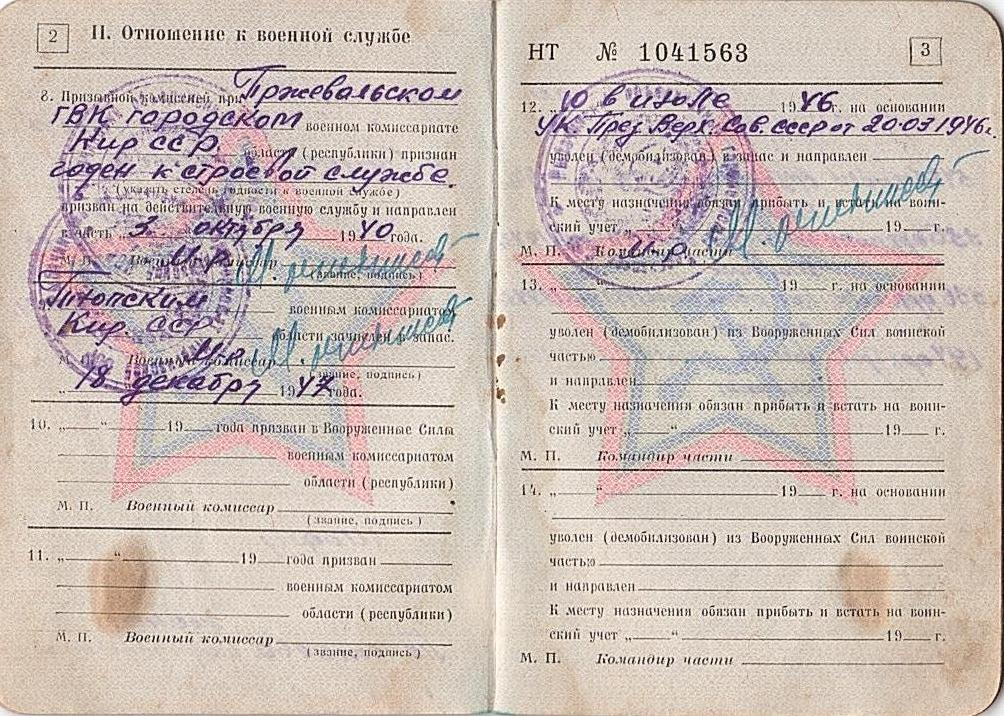 2
II. Отношение к военной службе
8. Призывной комиссией при Пржевальском
ГВК городском военном комиссариате
Кир ССР области (республики) признан
годен к строевой службе.
(указать степень годности к военной службе)
призван на действительную военную службу и направлен
в часть „3" октября 1940 года.
М. П. Военный комиссар
(звание, подпись)
Тюпским военным комиссариатом
Кир. ССР области зачислен в запас.
М. П. Военный комиссар
(звание, подпись)
„18" декабря 1947 года.
10. „____" ____ 19__ года призван в Вооруженные Силы
военным комиссариатом
области (республики)
М. П. Военный комиссар
(звание, подпись)
11. „____" ____ 19__ года призван
военным комиссариатом
области (республики)
М. П. Военный комиссар
(звание, подпись)
НТ № 1041563
3
12. „10" июле 1946 г. на основании
УК През. Верх. Сов. СССР от 20-03 1946 г.
уволен (демобилизован) в запас и направлен
К месту назначения обязан прибыть и встать на воин-
ский учет „____" ____ 19__ г.
М. П. Командир части
13. „____" ____ 19__ г. на основании
уволен (демобилизован) из Вооруженных Сил воинской
частью
и направлен
К месту назначения обязан прибыть и встать на воин-
ский учет „____" ____ 19__ г.
М. П. Командир части
14. „____" ____ 19__ г. на основании
уволен (демобилизован) из Вооруженных Сил воинской
частью
и направлен
К месту назначения обязан прибыть и встать на воин-
ский учет „____" ____ 19__ г.
М. П. Командир части